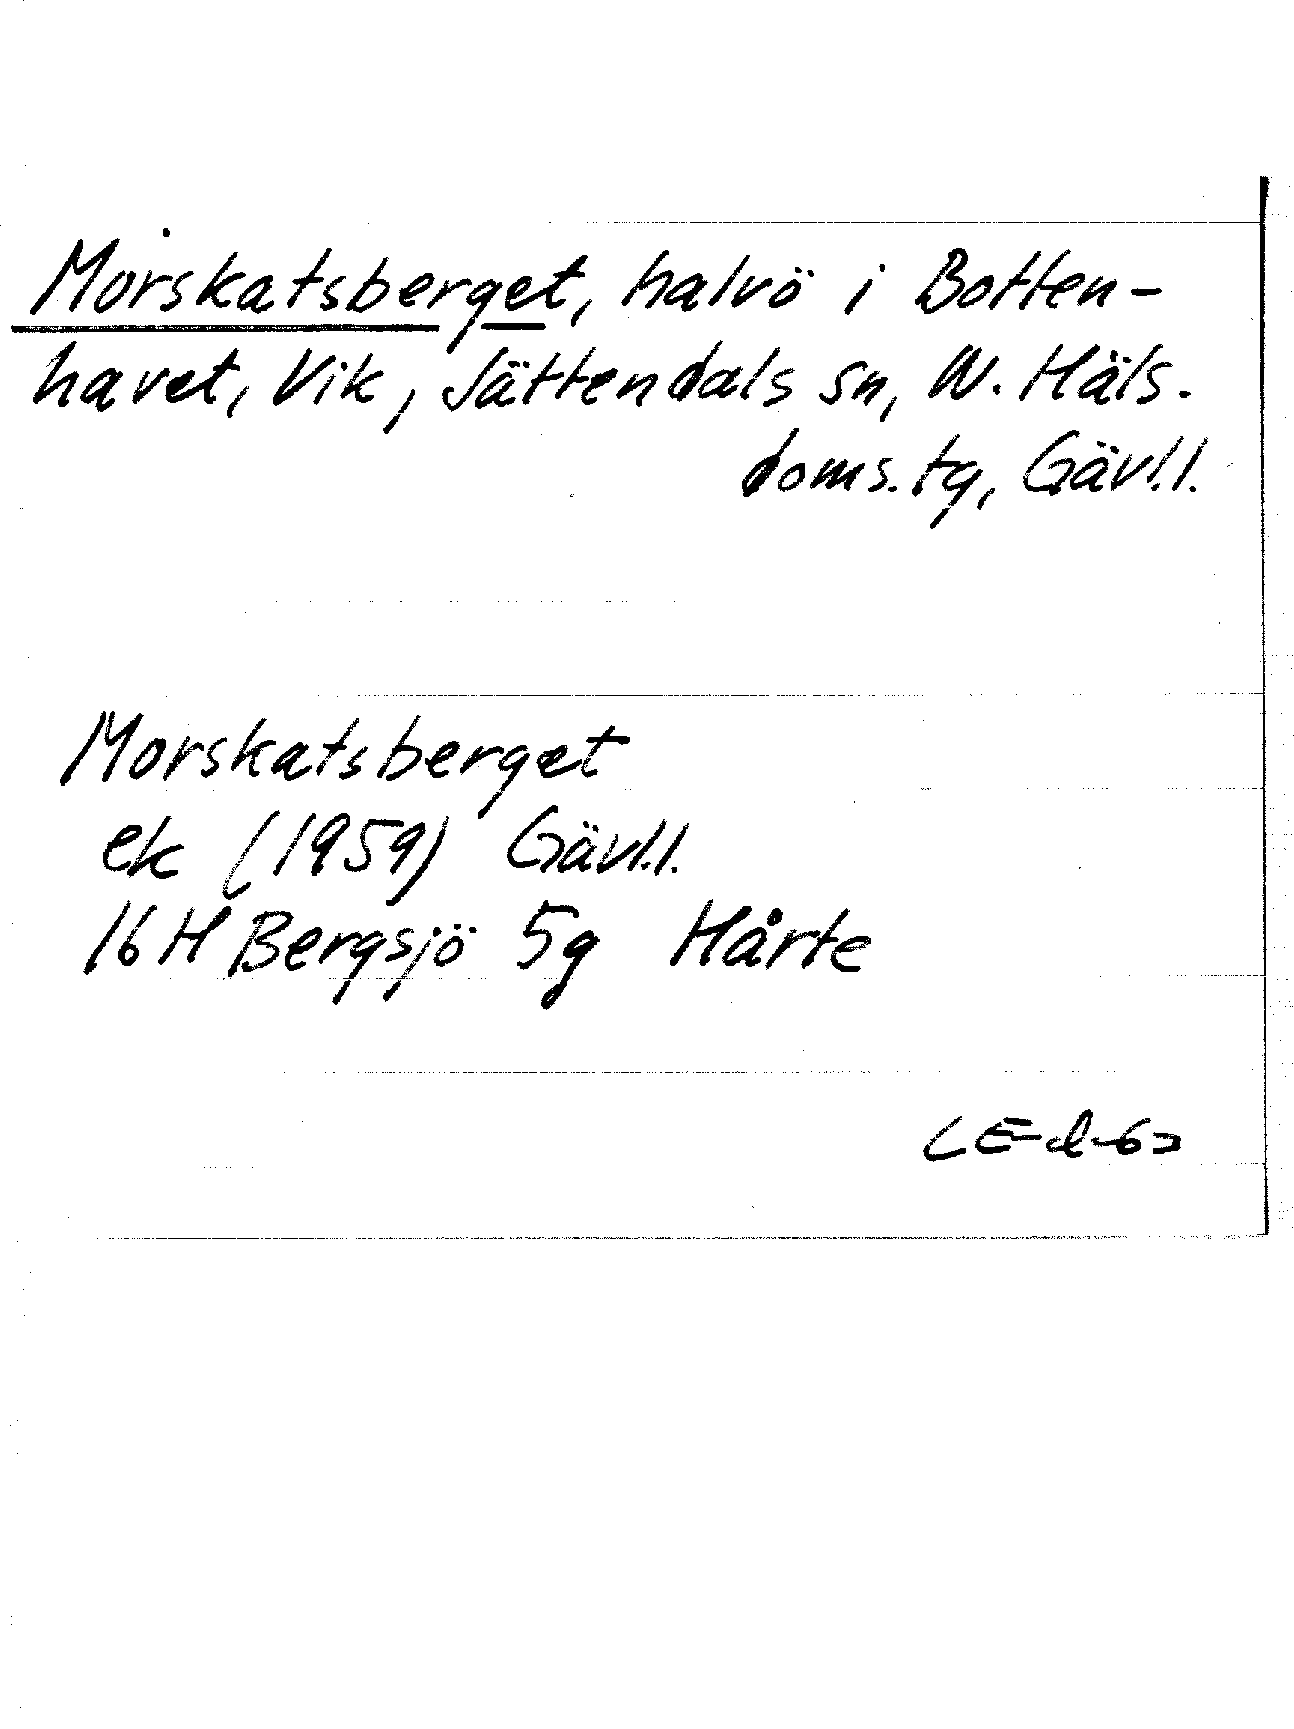 Morskatsberget, halvö i Botten-
havet, Vik, Jättendals sn, N. Häls.
doms.tg, Gävl.l.
Morskatsberget
ek (1959) Gävl.l.
16 H Bergsjö 5g Hårte